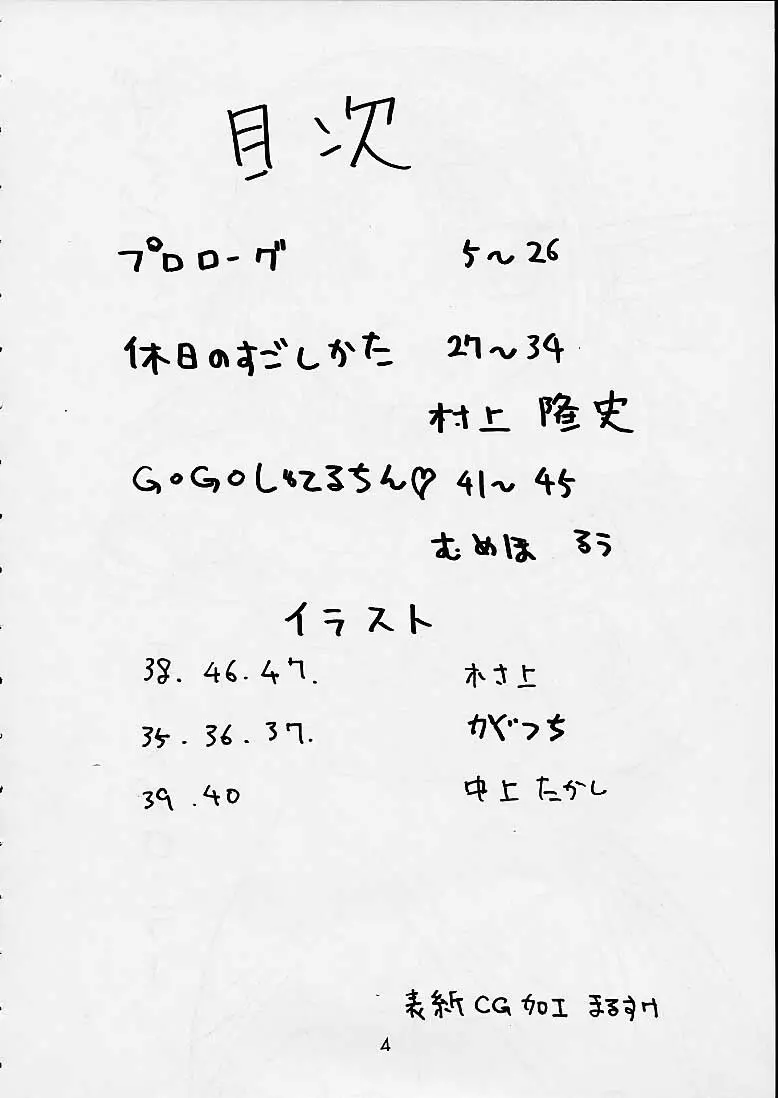 目次
プロローグ 5〜26
休日のすごしかた 27〜34
村上 隆史
GoGoしおてるちん♡ 41〜45
むめほ るう
イラスト
38. 46. 47. 木さ上
35. 36. 37. がくっち
39. 40 中上 たかし
表紙CG加工 まるすけ
4